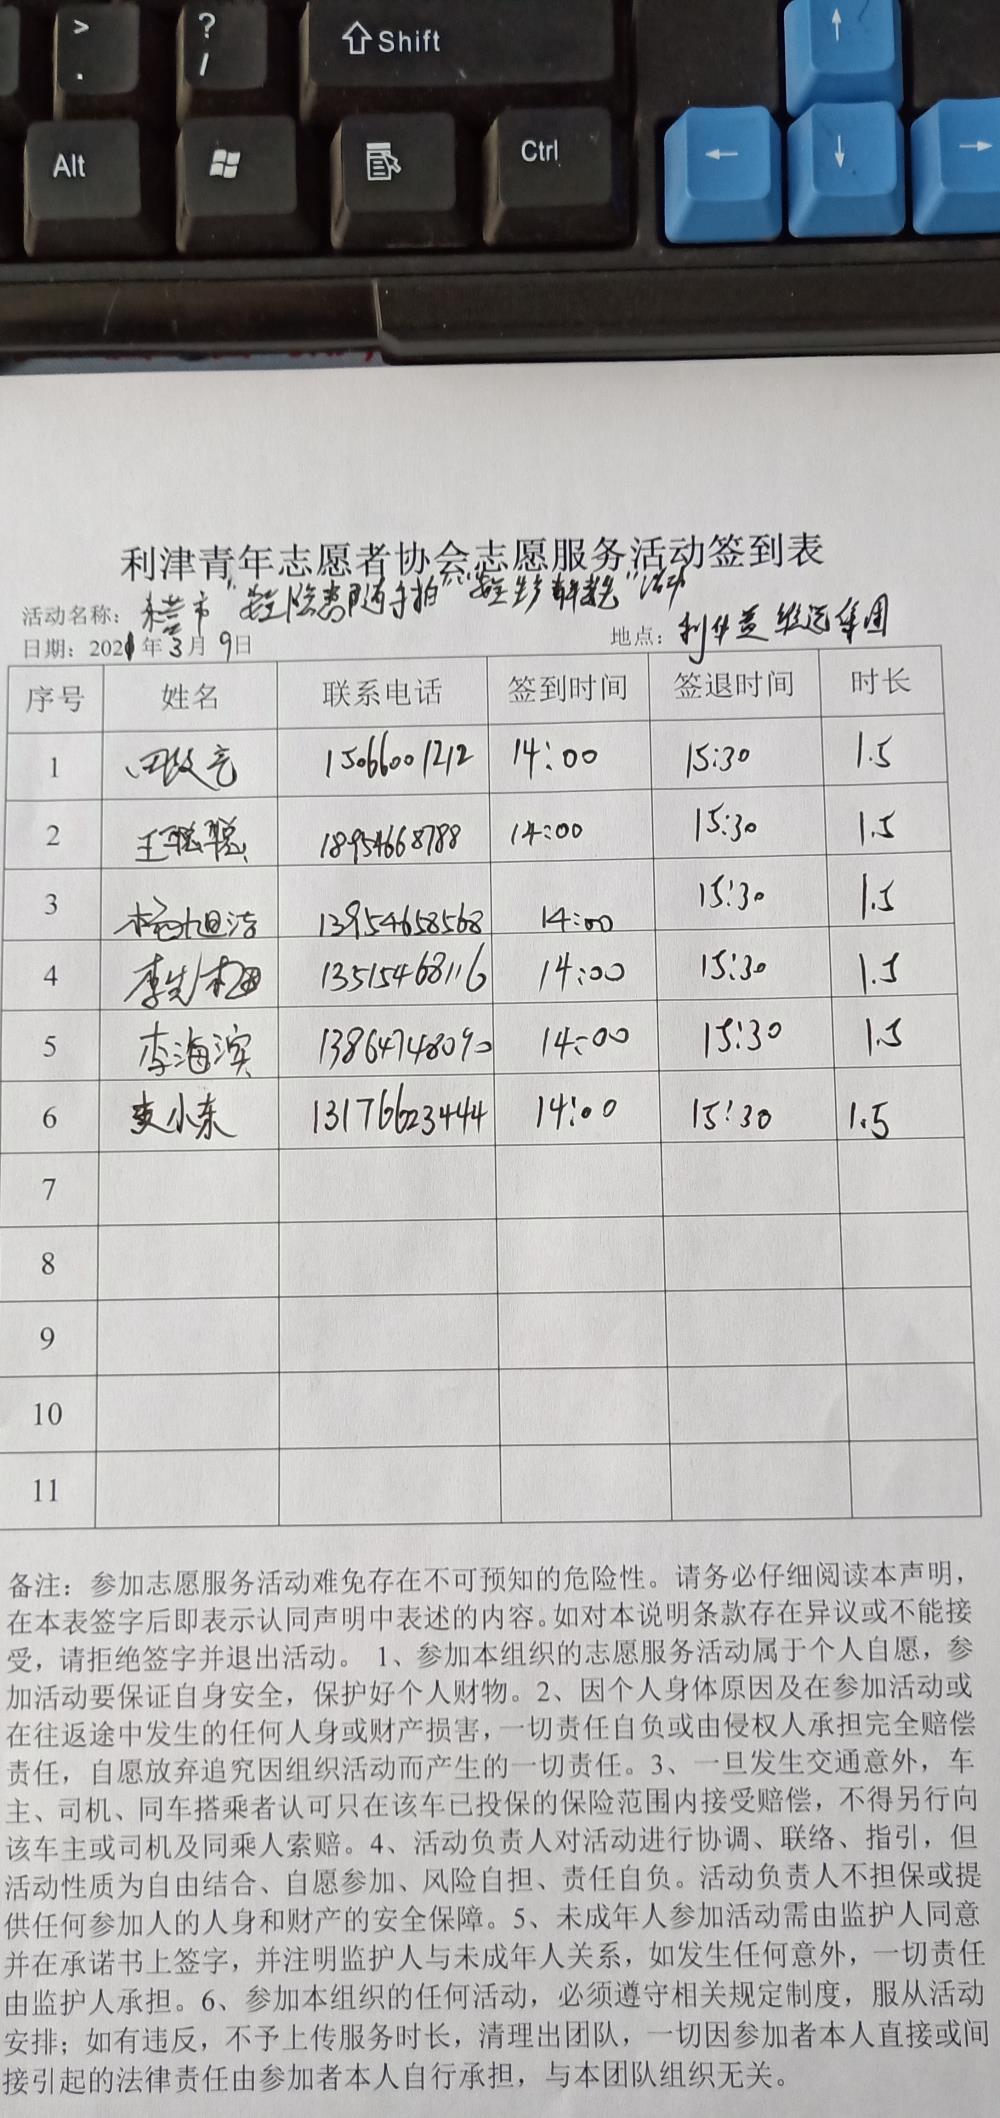 >
.
?
/
Shift
Alt
Ctrl
利津青年志愿者协会志愿服务活动签到表
活动名称：东营市“安全隐患随手拍”“安全生产 ”活动
日期：2021年3月9日 地点：利华益 集团
序号 姓名 联系电话 签到时间 签退时间 时长
1 15066001212 14:00 15:30 1.5
2 王聪聪 18954668788 14:00 15:30 1.5
3 杨旭洁 13954658568 14:00 15:30 1.5
4 李先梅 13515468116 14:00 15:30 1.5
5 李海滨 13864748090 14:00 15:30 1.5
6 小东 13176623444 14:00 15:30 1.5
7
8
9
10
11
备注：参加志愿服务活动难免存在不可预知的危险性。请务必仔细阅读本声明，
在本表签字后即表示认同声明中表述的内容。如对本说明条款存在异议或不能接
受，请拒绝签字并退出活动。 1、参加本组织的志愿服务活动属于个人自愿，参
加活动要保证自身安全，保护好个人财物。2、因个人身体原因及在参加活动或
在往返途中发生的任何人身或财产损害，一切责任自负或由侵权人承担完全赔偿
责任，自愿放弃追究因组织活动而产生的一切责任。3、一旦发生交通意外，车
主、司机、同车搭乘者认可只在该车已投保的保险范围内接受赔偿，不得另行向
该车主或司机及同乘人索赔。4、活动负责人对活动进行协调、联络、指引，但
活动性质为自由结合、自愿参加、风险自担、责任自负。活动负责人不担保或提
供任何参加人的人身和财产的安全保障。5、未成年人参加活动需由监护人同意
并在承诺书上签字，并注明监护人与未成年人关系，如发生任何意外，一切责任
由监护人承担。6、参加本组织的任何活动，必须遵守相关规定制度，服从活动
安排；如有违反，不予上传服务时长，清理出团队，一切因参加者本人直接或间
接引起的法律责任由参加者本人自行承担，与本团队组织无关。